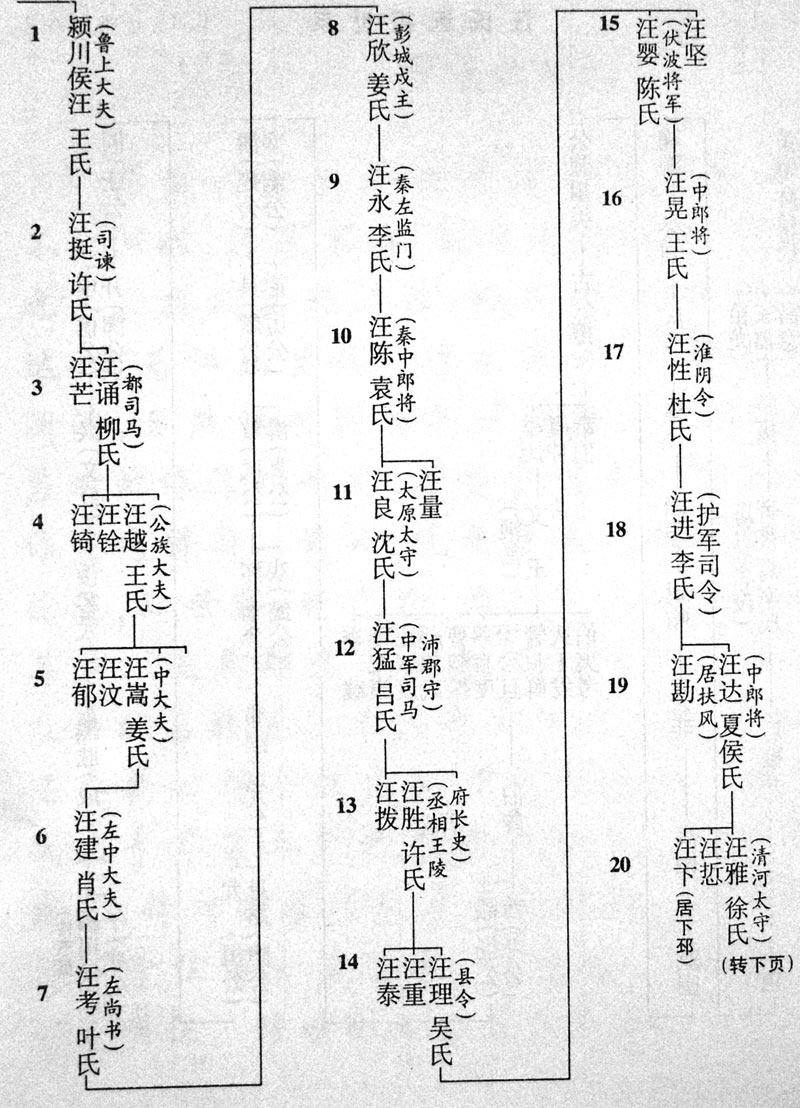 1
颍川侯汪 王氏
(鲁上大夫)
2
汪挺 许氏
(司谏)
3
汪芒
汪诵 柳氏
(都司马)
4
汪锜
汪铨
汪越 王氏
(公族大夫)
5
汪郁
汪汶
汪嵩 姜氏
(中大夫)
6
汪建 肖氏
(左中大夫)
7
汪考 叶氏
(左尚书)
8
汪欣 姜氏
(彭城戍主)
9
汪永 李氏
(秦左监门)
10
汪陈 袁氏
(秦中郎将)
11
汪良 沈氏
(太原太守)
汪量
12
汪猛 吕氏
(中军司马
沛郡守)
13
汪拨
汪胜 许氏
(丞相王陵
府长史)
14
汪泰
汪重
汪理 吴氏
(县令)
15
汪婴 陈氏
(伏波将军)
汪坚
16
汪晃 王氏
(中郎将)
17
汪性 杜氏
(淮阴令)
18
汪进 李氏
(护军司令)
19
汪勘
(居扶风)
汪达 夏侯氏
(中郎将)
20
汪卞(居下邳)
汪悊
汪雅 徐氏
(清河太守)
(转下页)